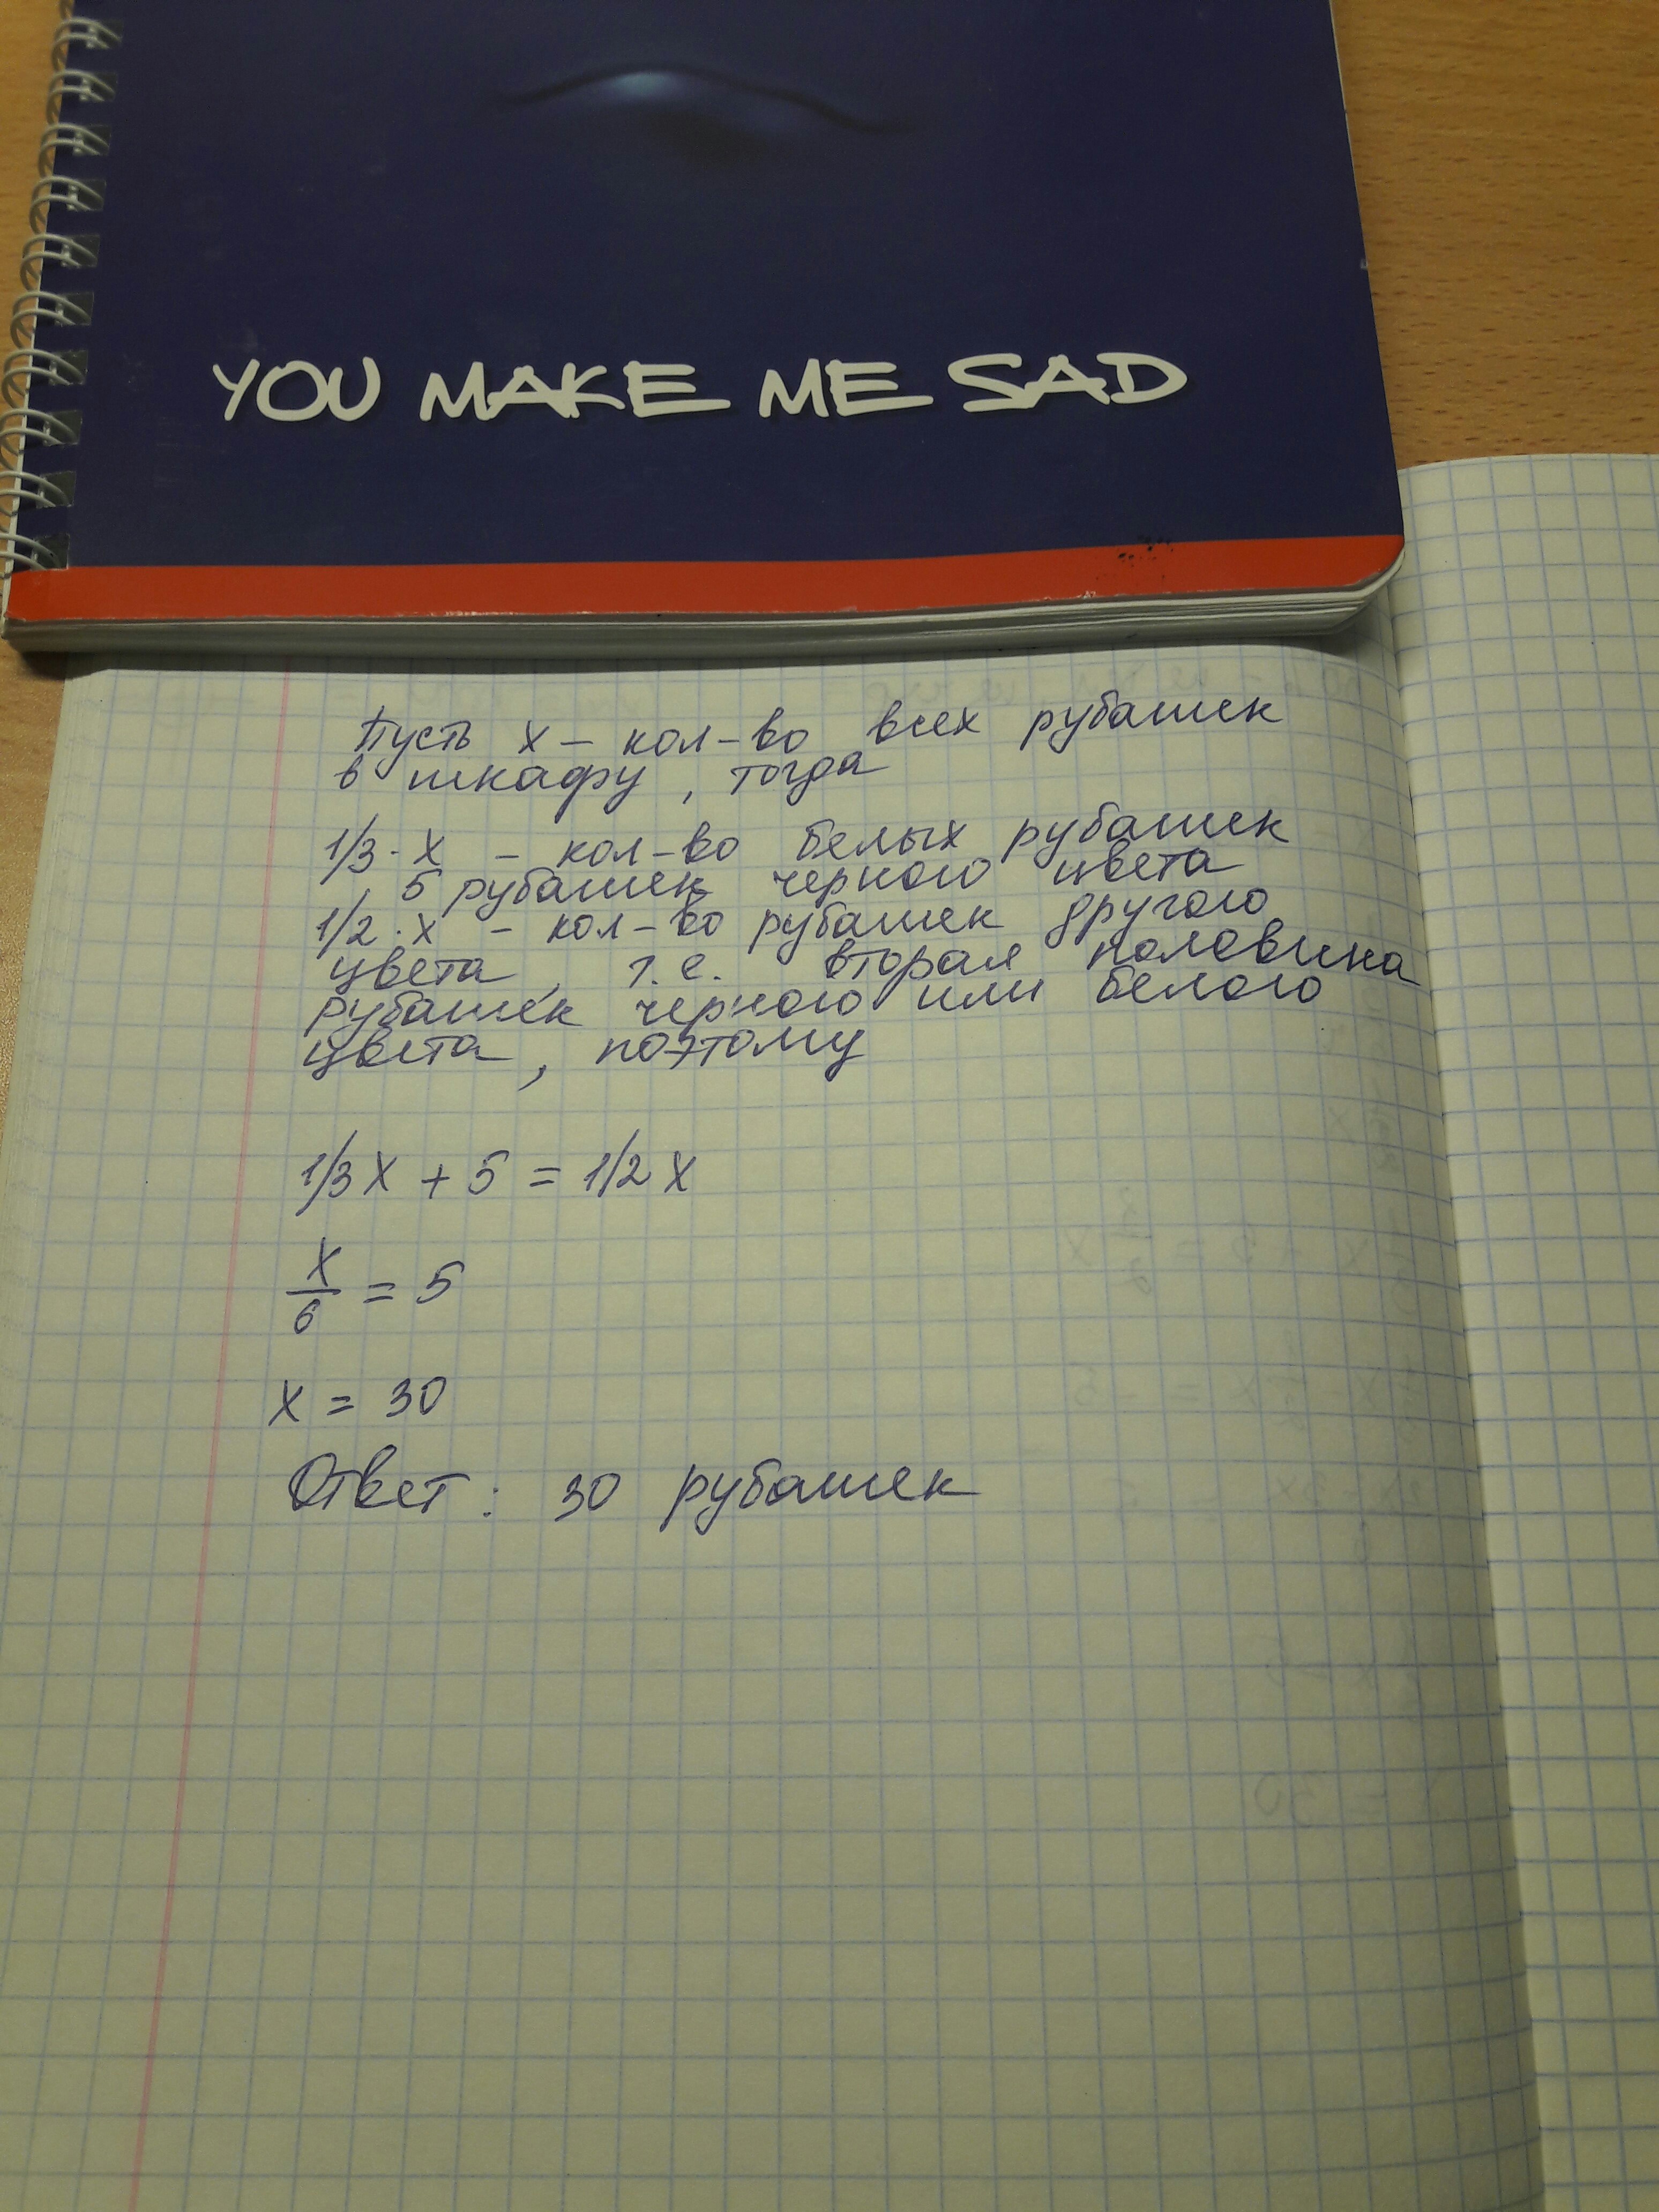 YOU MAKE ME SAD
Пусть x – кол-во всех рубашек
в шкафу, тогда
1/3 · x – кол-во белых рубашек
, 5 рубашек черного цвета
1/2 · x – кол-во рубашек другого
цвета, т.е. вторая половина
рубашек черного или белого
цвета, поэтому
1/3 x + 5 = 1/2 x
x/6 = 5
x = 30
Ответ: 30 рубашек